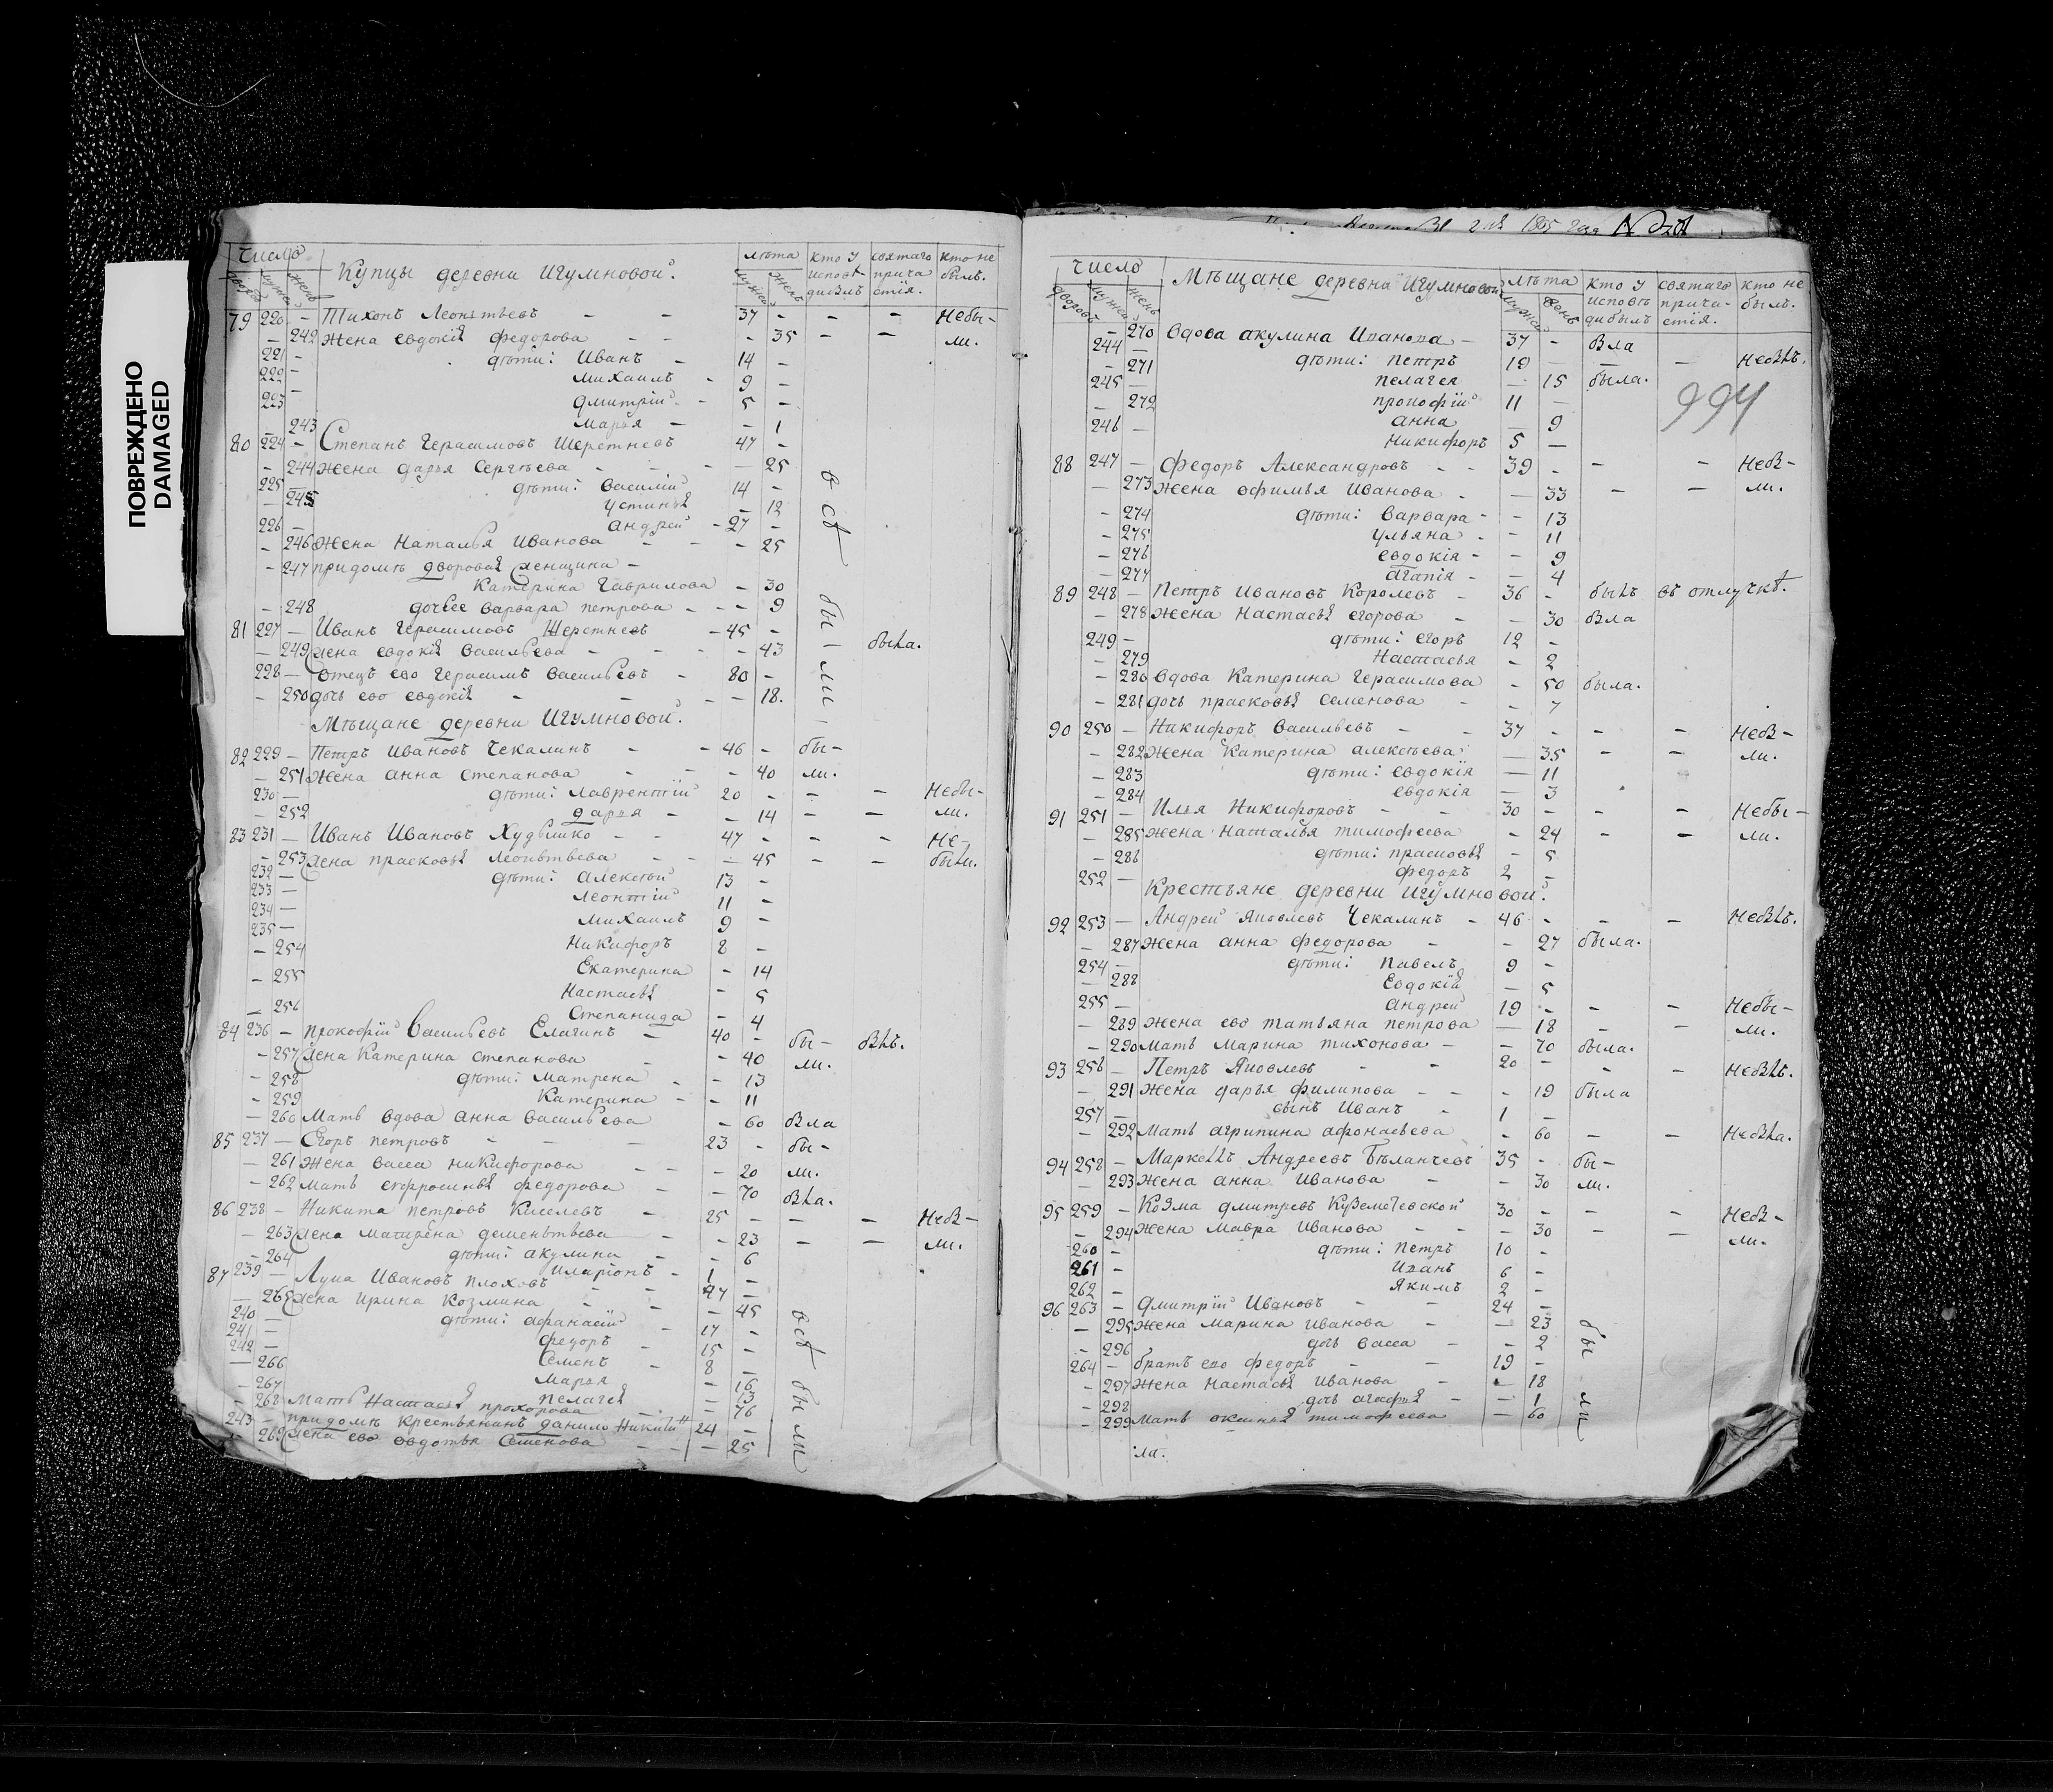 ПОВРЕЖДЕНО
DAMAGED
Число
дворовъ мужеск женъ
Купцы деревни Игумновой.
лѣта
мужеск женъ
кто у исповѣди былъ
святаго причастія.
кто не былъ.
79 220 – Тихонъ Леонтьевъ – – 37 – – – Небы-
– 242 Жена Евдокія Федорова – – – 35 – – ли.
221 – дѣти: Иванъ – 14 –
222 – Михаилъ – 9 –
223 – Дмитрій – 5 –
– 243 Марья – – 1
80 224 – Степанъ Герасимовъ Шеретневъ 47 –
– 244 Жена Дарья Сергѣева – – – 25
225 – дѣти: Василій 14 –
– 245 Устинья – 12
226 – Андрей – 27 –
– 246 Жена Наталья Иванова – – – 25
– 247 придомѣ дворовая женщина –
Катерина Гаврилова – 30
– 248 дочь ее Варвара Петрова – – – 9
всѣ были
81 227 – Иванъ Герасимовъ Шеретневъ – 45 –
– 249 Жена Евдокія Васильева – – – 43 – была.
228 – Отецъ ево Герасимъ Васильевъ – 80 –
– 250 дочь ево Евдокія – – – – 18.
Мѣщане деревни Игумновой.
82 229 – Петръ Ивановъ Чекалинъ – – 46 – бы-
– 251 Жена Анна Степанова – – – 40 ли.
230 – дѣти: Лаврентій 20 – – – Небы-
– 252 Дарья – – 14 – – ли.
83 231 – Иванъ Ивановъ Худышко – – 47 – – – Не-
– 253 Жена Прасковья Леонтьева – – – 45 – – были.
232 – дѣти: Алексѣй 13 –
233 – Леонтій 11 –
234 – Михаилъ 9 –
235 – Никифоръ 8 –
– 254 Екатерина – 14
– 255 Настасья – 5
– 256 Степанида – 4
84 236 – Прокофій Васильевъ Елагинъ – 40 – бы- былъ.
– 257 Жена Катерина Степанова – 40 ли.
– 258 дѣти: Матрена – – 13
– 259 Катерина – – 11
– 260 Мать вдова Анна Васильева – 60 была
85 237 – Егоръ Петровъ – – – 23 – бы-
– 261 Жена Васса Никифорова – – – 20 ли.
– 262 Мать Ефросинья Федорова – – 70 была.
86 238 – Никита Петровъ Киселевъ – 25 – – – Небы-
– 263 Жена Матрена Дементьева – – 23 – – ли.
– 264 дѣти: Акулина – – 6
239 – Иларіонъ – 1 –
87 – Лука Ивановъ Плоховъ – – 47 –
– 265 Жена Ирина Козмина – – – 45
240 – дѣти: Афанасій – 17 –
241 – Федоръ – 15 –
242 – Семенъ – 8 –
– 266 Марья – 16
– 267 Пелагея – 13
– 268 Мать Настасья Прохорова – – 76
243 – придомѣ крестьянинъ Данило Никитинъ 24 –
– 269 Жена ево Овдотья Семенова – – – 25
всѣ были
1805 года
Число
дворовъ мужеск женъ
Мѣщане деревни Игумновой
лѣта
мужеск женъ
кто у исповѣди былъ
святаго причастія.
кто не былъ.
– 270 Вдова Акулина Иванова – 37 – была
244 – дѣти: Петръ 19 – – – небылъ.
– 271 Пелагея – 15 была.
245 – Прокофій 11 –
– 272 Анна – 9
246 – Никифоръ 5 –
994
88 247 – Федоръ Александровъ – – 39 – – – Небы-
– 273 Жена Офимья Иванова – – 33 – – ли.
– 274 дѣти: Варвара – – 13
– 275 Ульяна – – 11
– 276 Евдокія – – 9
– 277 Агапія – – 4
89 248 – Петръ Ивановъ Королевъ – 36 – былъ въ отлучкѣ.
– 278 Жена Настасья Егорова – – 30 была
249 – дѣти: Егоръ 12 –
– 279 Настасья – 2
– 280 Вдова Катерина Герасимова – 50 была.
– 281 дочь Прасковья Семенова – – 7
90 250 – Никифоръ Васильевъ – – 37 – – – Небы-
– 282 Жена Катерина Алексѣева – 35 – – ли.
– 283 дѣти: Евдокія – 11
– 284 Евдокія – 3
91 251 – Илья Никифоровъ – – 30 – – – Небы-
– 285 Жена Наталья Тимофеева – 24 – – ли.
– 286 дѣти: Прасковья – 5
252 – Федоръ 2 –
Крестьяне деревни Игумновой.
92 253 – Андрей Яковлевъ Чекалинъ – 46 – – – Небылъ.
– 287 Жена Анна Федорова – – 27 была.
254 – дѣти: Павелъ 9 –
– 288 Евдокія – 5
255 – Андрей 19 – – – Небы-
– 289 Жена ево Татьяна Петрова – 18 – – ли.
– 290 Мать Марина Тихонова – – 70 была.
93 256 – Петръ Яковлевъ – – 20 – – – Небылъ.
– 291 Жена Дарья Филипова – – – 19 была
257 – сынъ Иванъ – 1 –
– 292 Мать Агрипина Афонасьева – 60 – – Небыла.
94 258 – Маркелъ Андреевъ Бѣланчевъ 35 – бы-
– 293 Жена Анна Иванова – – 30 ли.
95 259 – Козма Дмитревъ 30 – – – Небы-
– 294 Жена Мавра Иванова – – – 30 – – ли.
260 – дѣти: Петръ 10 –
261 – Иванъ 6 –
262 – Якимъ 2 –
96 263 – Дмитрій Ивановъ – – 24 –
– 295 Жена Марина Иванова – – 23
– 296 дочь Васса – – 2
264 – братъ ево Федоръ – – 19 –
– 297 Жена Настасья Иванова – – 18
– 298 дочь Агафья – – 1
– 299 Мать Тимофеева – 60
были
ла.